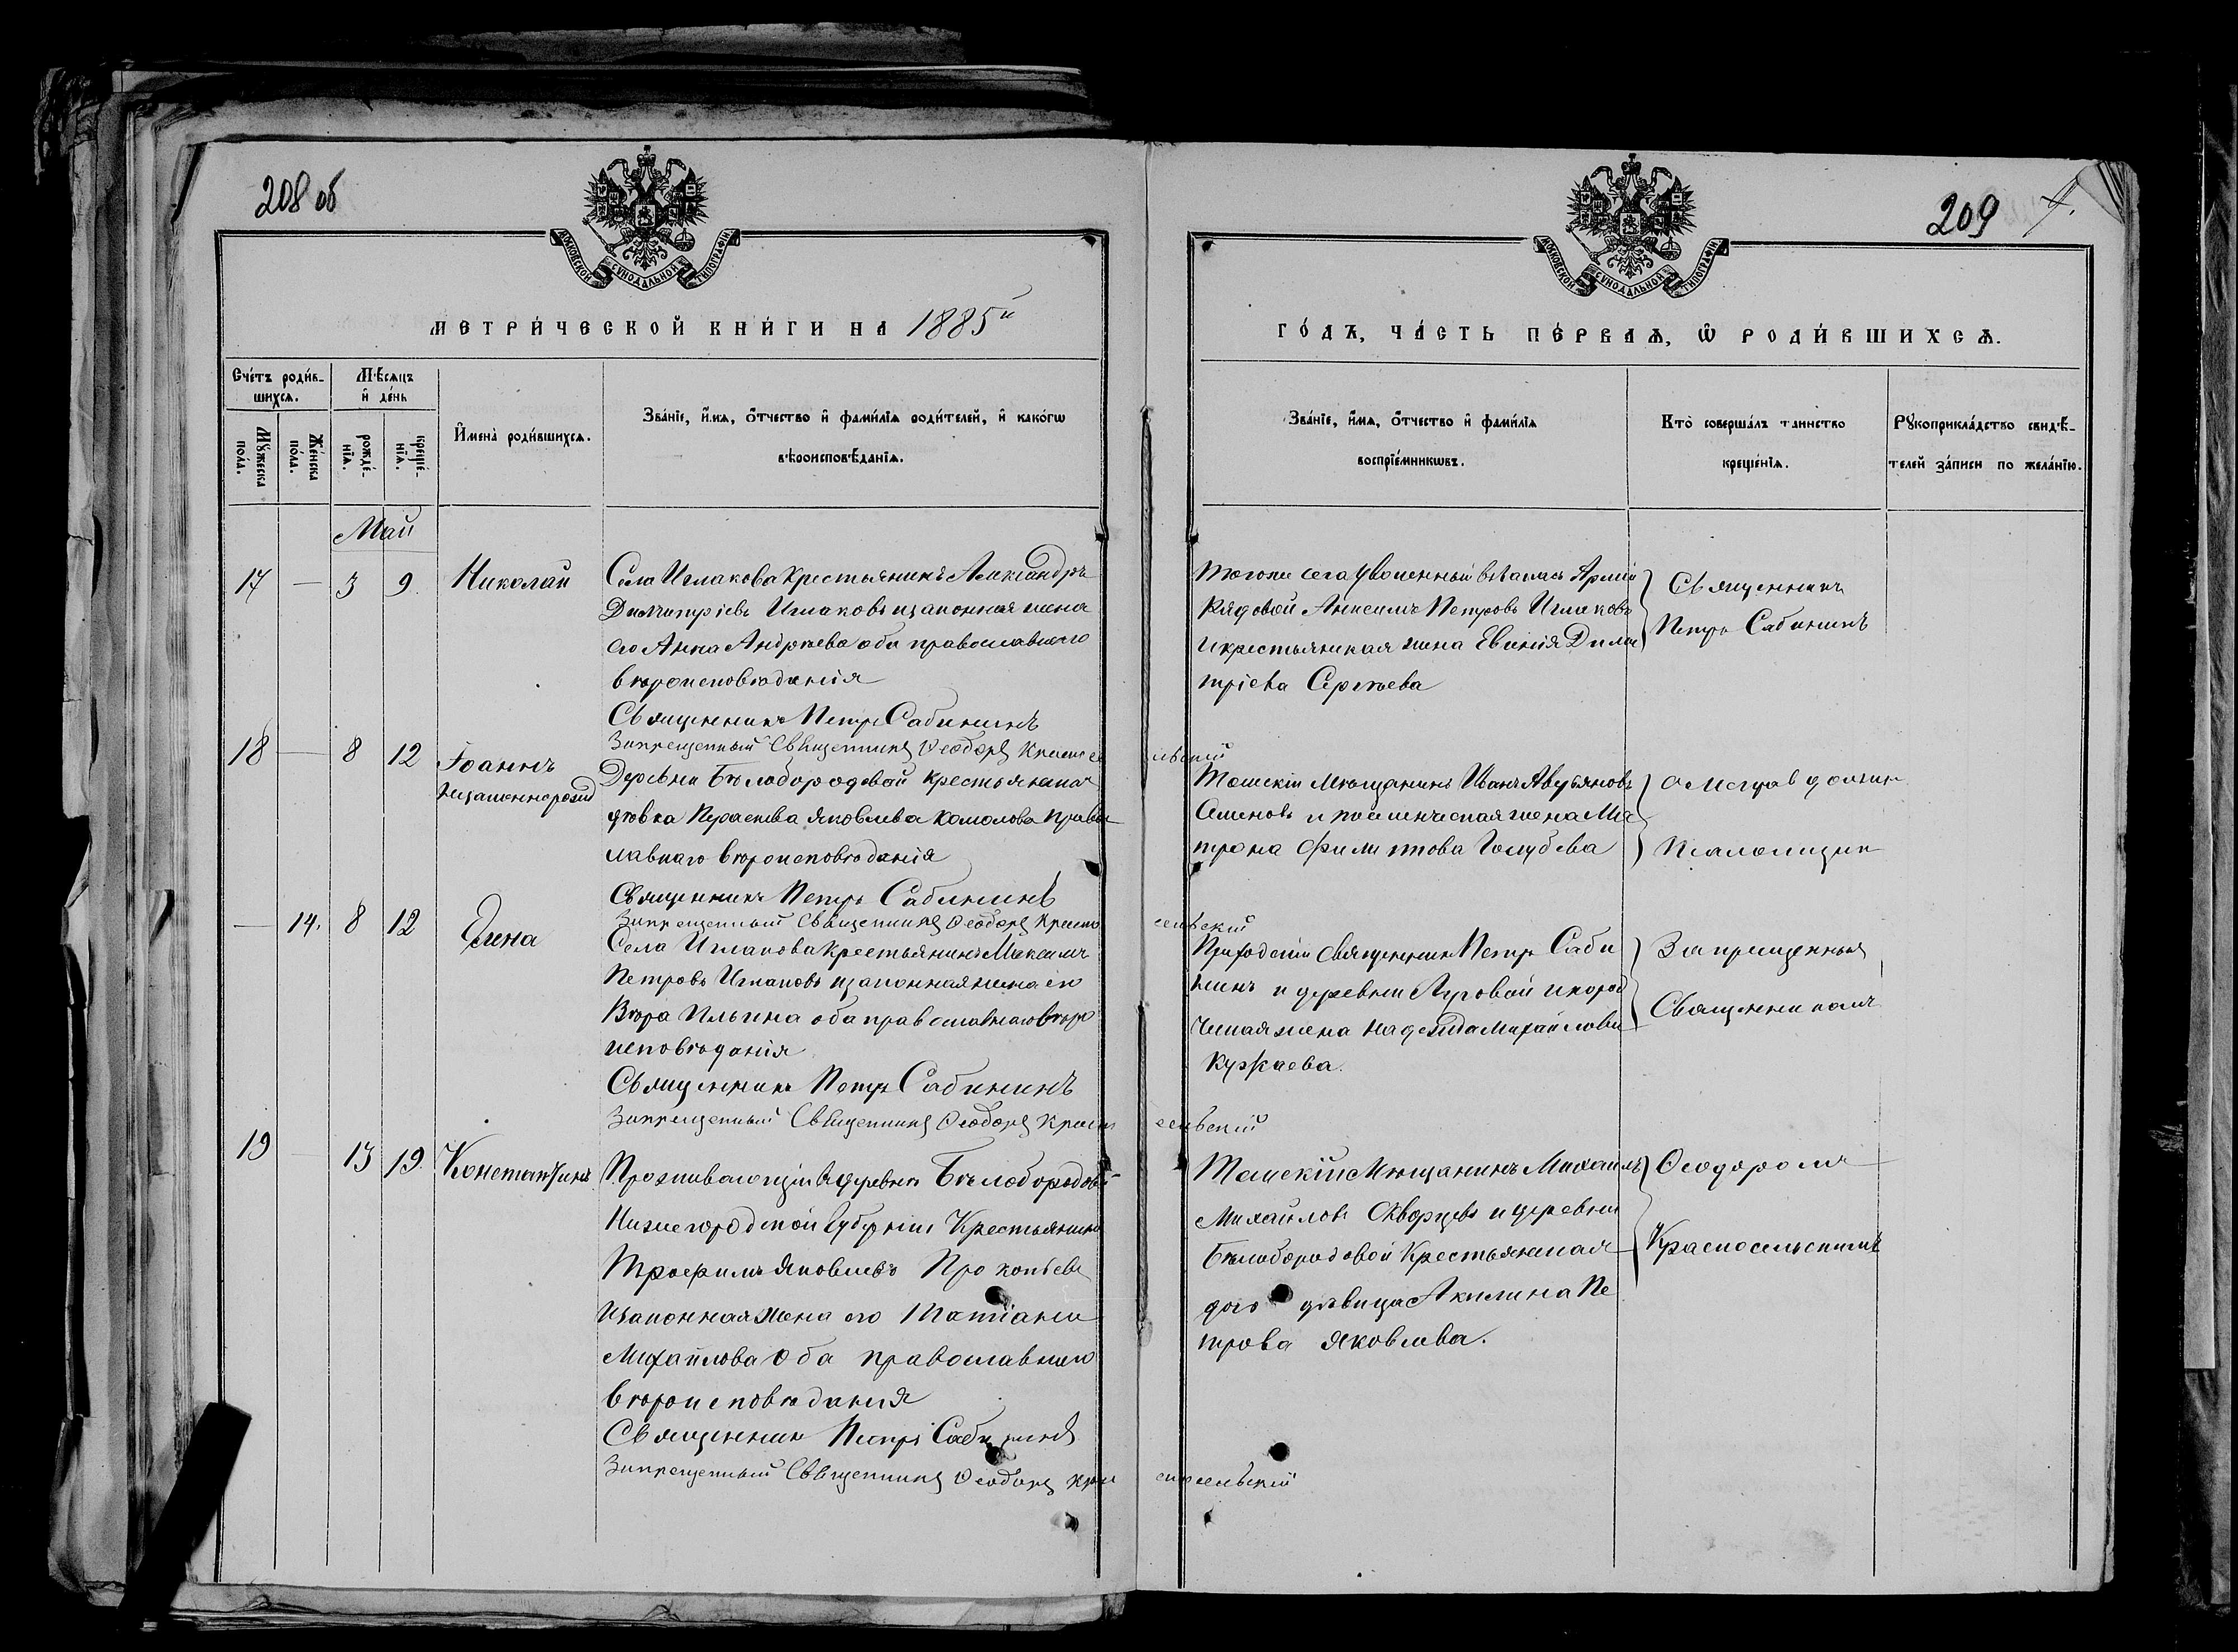 208 об
МОСКОВСКОЙ СУНОДАЛЬНОЙ ТИПОГРАФІИ
МЕТРИ́ЧЕСКОЙ КНИ́ГИ НА 1885й
Сче́тъ роди́в-
шихсѧ.
Мѣ́сѧцъ
и҆ де́нь
Мꙋ́жеска
по́ла.
Же́нска
по́ла.
рожде́-
нїѧ.
креще́-
нїѧ.
И҆мена̀ роди́вшихсѧ.
Зва́нїе, и҆́мѧ, ѻ҆́тчество и҆ фами́лїѧ роди́телей, и҆ како́гѡ
вѣроисповѣ́данїѧ.
Май
17 — 3 9. Николай
Села Иглакова Крестьянинъ Александръ
Димитріевъ Иглаковъ изаконная жена
его Анна Андреева оба православнаго
вѣроисповѣданія
Священникъ Петръ Сабининъ
Запрещенный Священникъ Ѳеодоръ Красносельскій
18 — 8 12 Іоаннъ
незаконнорожд
Деревни Бѣлобородовой крестьянская
дѣвка Параскева Яковлева Комолова Право
славнаго вѣроисповѣданія
Священникъ Петръ Сабининъ
Запрещенный Священникъ Ѳеодоръ Красносельскій
— 14. 8 12 Елена
Села Иглакова Крестьянинъ Максимъ
Петровъ Иглаковъ изаконная жена его
Вѣра Ильина оба православнаго вѣро
исповѣданія
Священникъ Петръ Сабининъ
Запрещенный Священникъ Ѳеодоръ Красносельскій
19 — 13 19. Константинъ
Проживающій вдеревнѣ Бѣлобородовой
Нижегородской губерніи Крестьянинъ
Трофимъ Яковлевъ Прокопьевъ
Изаконная жена его Татіана
Михайлова Оба православнаго
вѣроисповѣданія
Священникъ Петръ Сабининъ
Запрещенный Священникъ Ѳеодоръ Красносельскій
209
МОСКОВСКОЙ СУНОДАЛЬНОЙ ТИПОГРАФІИ
ГО́ДЪ, ЧА́СТЬ ПЕ́РВАѦ, Ѡ҆ РОДИ́ВШИХСѦ.
Зва́нїе, и҆́мѧ, ѻ҆́тчество и҆ фами́лїѧ
воспрїе́мникѡвъ.
Кто̀ соверша́лъ таинство
креще́нїѧ.
Рꙋкоприкла́дство свидѣ́-
телей за́писи по жела́нїю.
Тогоже села Уволенный взапасъ Арміи
Рядовой Анисимъ Петровъ Иглаковъ
икрестьянская жена Евгенія Дими
тріева Сергѣева
Священникъ
Петръ Сабининъ
Томскій Мѣщанинъ Иванъ Аверьяновъ
Семеновъ и жена Ма
трона Филиппова Голубева
Псаломщик
Приходскій Священникъ Петръ Саби
нинъ и деревни Луговой инород
ческая жена Надежда Михайлова
Запрещенным
Священникомъ
Томскій Мѣщанинъ Михаилъ
Михайловъ Скворцовъ и деревни
Бѣлобородовой Крестьянская
дѣвица Акилина Пе
трова Яковлева.
Ѳеодоромъ
Красносельскимъ